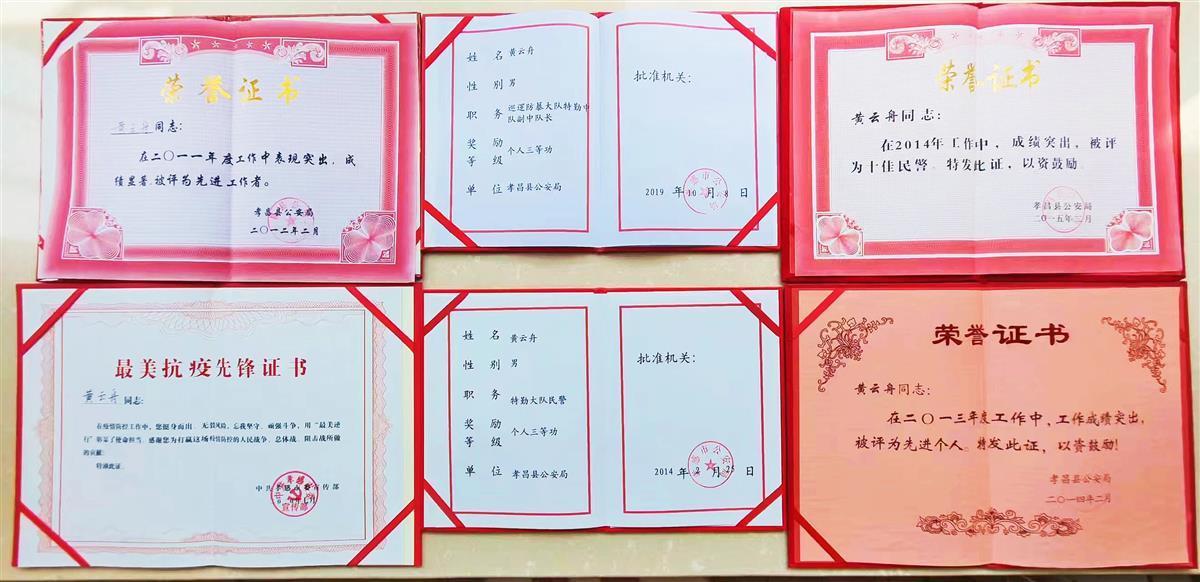 荣誉证书
黄云舟同志：
在二〇一一年度工作中表现突出，成
绩显著，被评为先进工作者。
孝昌县公安局
二〇一二年二月
姓名 黄云舟
性别 男
职务 巡逻防暴大队特勤中
队副中队长
奖励
等级 个人三等功
单位 孝昌县公安局
批准机关：
2019年10月8日
荣誉证书
黄云舟同志：
在2014年工作中，成绩突出，被评
为十佳民警。特发此证，以资鼓励。
孝昌县公安局
二〇一五年二月
最美抗疫先锋证书
黄云舟同志：
在疫情防控工作中，您挺身而出、无畏风险，忘我坚守、顽强斗争，用“最美逆
行”彰显了使命担当。感谢您为打赢这场疫情防控的人民战争、总体战、阻击战所做
的贡献！
特颁此证。
中共孝感市委宣传部
宣传部
姓名 黄云舟
性别 男
职务 特勤大队民警
奖励
等级 个人三等功
单位 孝昌县公安局
批准机关：
2014年2月25日
荣誉证书
黄云舟同志：
在二〇一三年度工作中，工作成绩突出，
被评为先进个人。特发此证，以资鼓励！
孝昌县公安局
二〇一四年二月